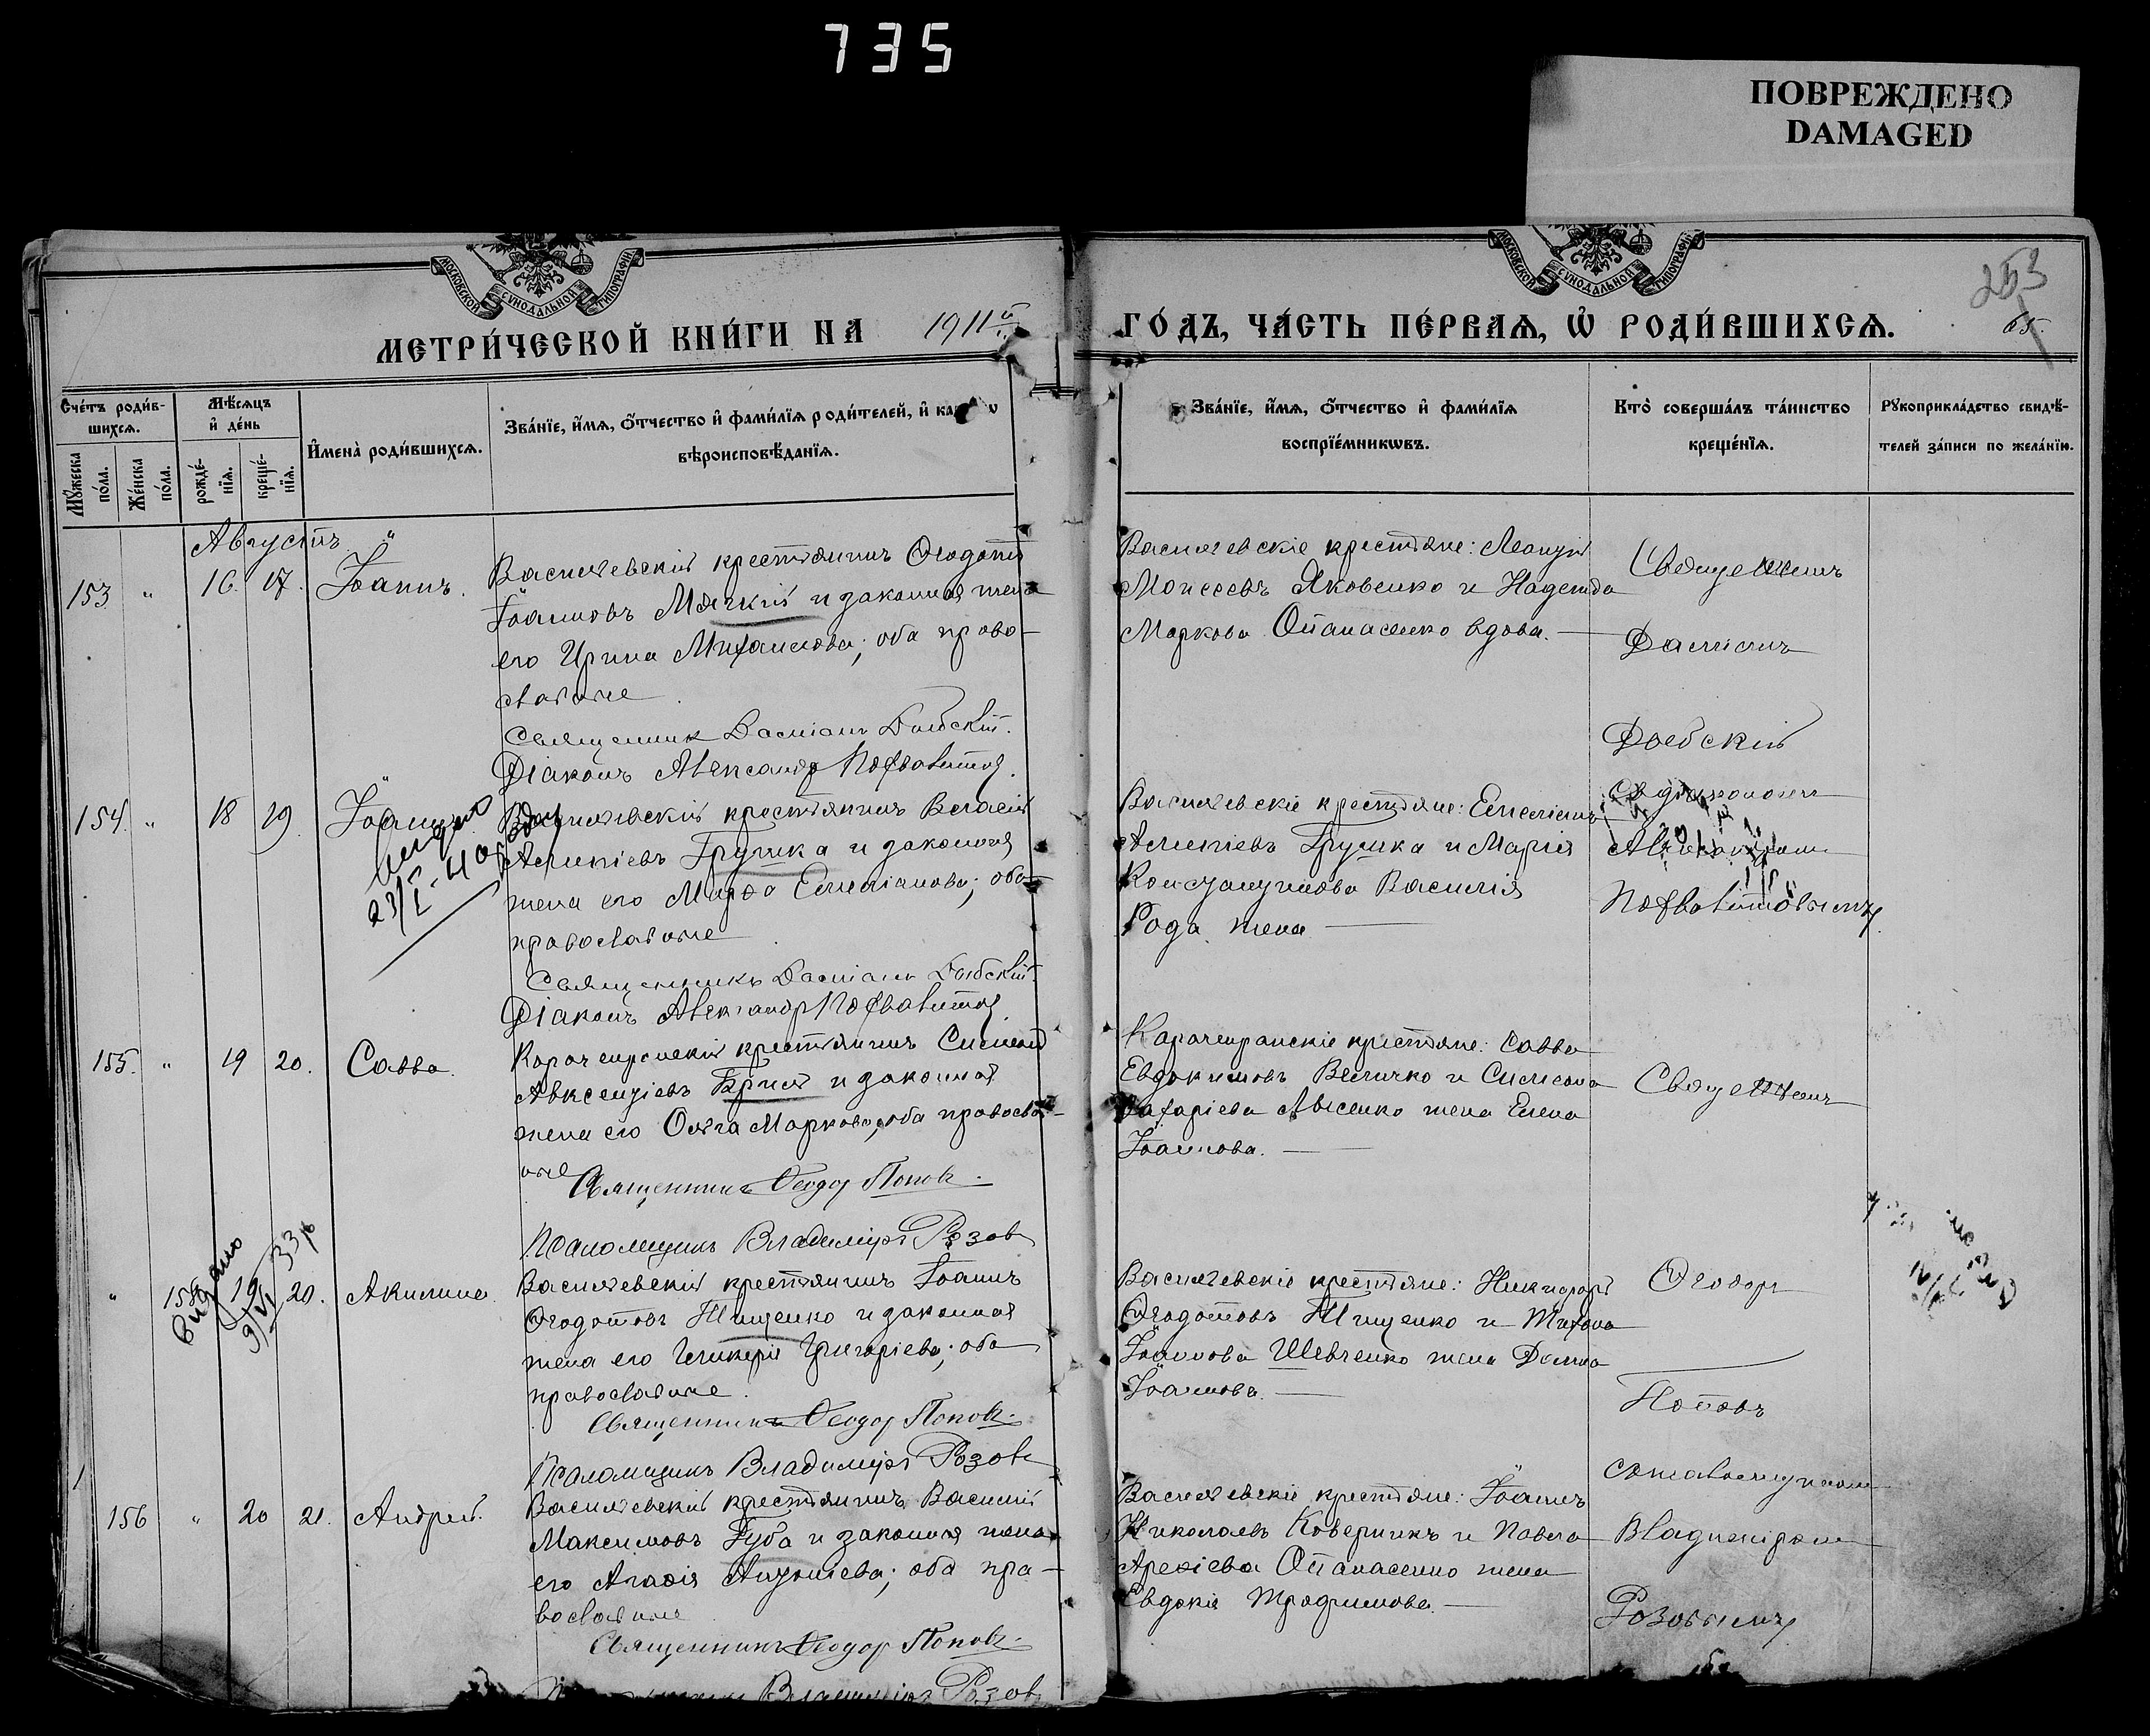 735
ПОВРЕЖДЕНО
DAMAGED
МОСКОВСКОЙ СУНОДАЛЬНОЙ ТИПОГРАФІИ
МОСКОВСКОЙ СУНОДАЛЬНОЙ ТИПОГРАФІИ
253
65.
МЕТРИ́ЧЕСКОЙ КНИ́ГИ НА 1911й ГО́ДЪ, ЧА́СТЬ ПЕ́РВАѦ, Ѡ҆ РОДИ́ВШИХСѦ.
Сче́тъ роди́в-
шихсѧ.
Мꙋ́жеска по́ла.
Же́нска по́ла.
Мѣ́сѧцъ
и҆ де́нь
рожде́-
нїѧ.
креще́-
нїѧ.
И҆мена̀ роди́вшихсѧ.
Зва́нїе, и҆́мѧ, ѻ҆́тчество и҆ фами́лїѧ роди́телей, и҆
вѣроисповѣ́данїѧ.
Зва́нїе, и҆́мѧ, ѻ҆́тчество и҆ фами́лїѧ
воспрїе́мникѡвъ.
Кто̀ соверша́лъ та́инство
креще́нїѧ.
Рꙋкоприкла́дство свидѣ́-
телей за́писи по жела́нїю.
Августъ
153 " 16. 17. Іоаннъ.
Василевскій крестьянинъ Ѳеодотъ
Іоанновъ Мягкій и законная жена
его Ирина Михаилова; оба право-
славные.
Священник Даміанъ
Діаконъ Александр Похвалитов.
Василевскіе крестьяне: Леонтій
Моисеевъ Яковенко и Надежда
Маркова Опанасенко вдова.
Священникъ
Даміанъ
154. " 18 19. Іоаннъ
23/I-40
Василевскій крестьянинъ Власій
Асинкіевъ Грушка и законная
жена его Марѳа Емеліанова; оба
православные.
Священникъ Даміанъ
Діаконъ Александр Похвалитов.
Василевскіе крестьяне: Емеліанъ
Асинкіевъ Грушка и Марія
Константинова Василія
Рода жена
Похвалитовымъ.
155. " 19 20. Савва.
крестьянинъ Симеонъ
Авксентіевъ Бриль и законная
жена его Ольга Маркова; оба православ-
ные
Священникъ Ѳеодор Попов.
Псаломщикъ Владиміръ Розов
крестьяне: Савва
Евдокимовъ Величко и Симеона
Захаріева Лысенко жена Елена
Іоаннова.
Священникъ
видано
9/VI 33 р
" 158 19 20. Акилина
Василевскій крестьянинъ Іоаннъ
Ѳеодотовъ Тищенко и законная
жена его Гликерія Григоріева; оба
православные.
Священникъ Ѳеодор Попов.
Псаломщикъ Владиміръ Розовъ
Василевскіе крестьяне: Никифоръ
Ѳеодотовъ Тищенко и
Іоаннова Шевченко жена Домна
Іоаннова.
Ѳеодоръ
Поповъ
156 " 20 21. Андрей.
Василевскій крестьянинъ Василій
Максимовъ Губа и законная жена
его Агафія Антоніева; оба пра-
вославные
Священникъ Ѳеодор Попов.
Владиміръ Розов
Василевскіе крестьяне: Іоаннъ
Николаевъ Коверникъ и Павла
Арефіева Опанасенко жена
Евдокія Трофимова.
Владиміром
Розовымъ